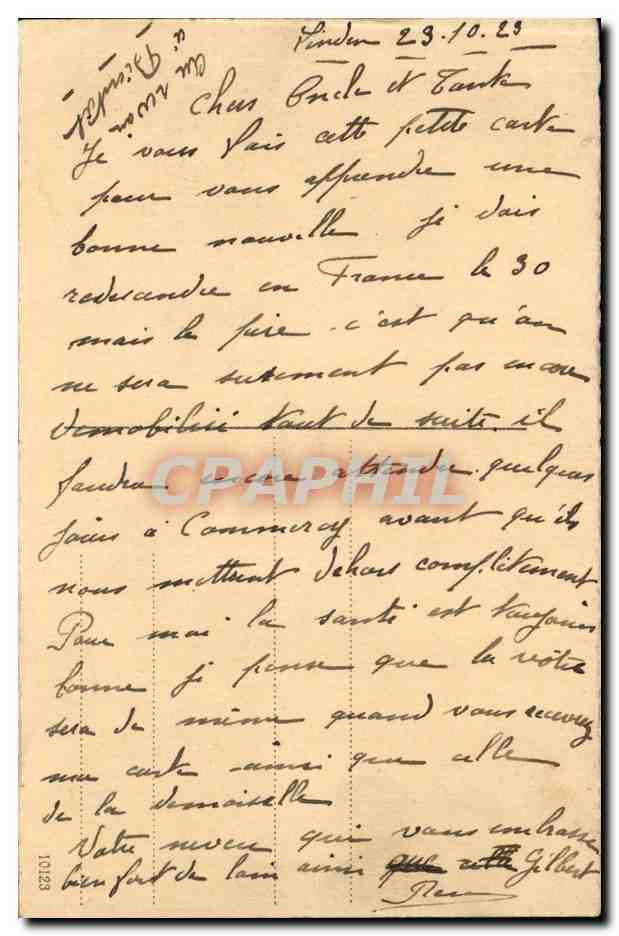 23.10.23
Au revoir
à Bientôt
Chers Oncle et Tante
Je vous fais cette petite carte
pour vous apprendre une
bonne nouvelle je dois
redescendre en France le 30
mais le pire c'est qu'on
ne sera surement pas encore
démobilisé tout de suite il
faudra encore attendre quelques
jours à Commercy avant qu'ils
nous mettent dehors complètement
Pour moi la santé est toujours
bonne je pense que la vôtre
sera de même quand vous recevrez
ma carte ainsi que celle
de la demoiselle
Votre neveu qui vous embrasse
bien fort de loin ainsi que Gilbert
10123
CPAPHIL